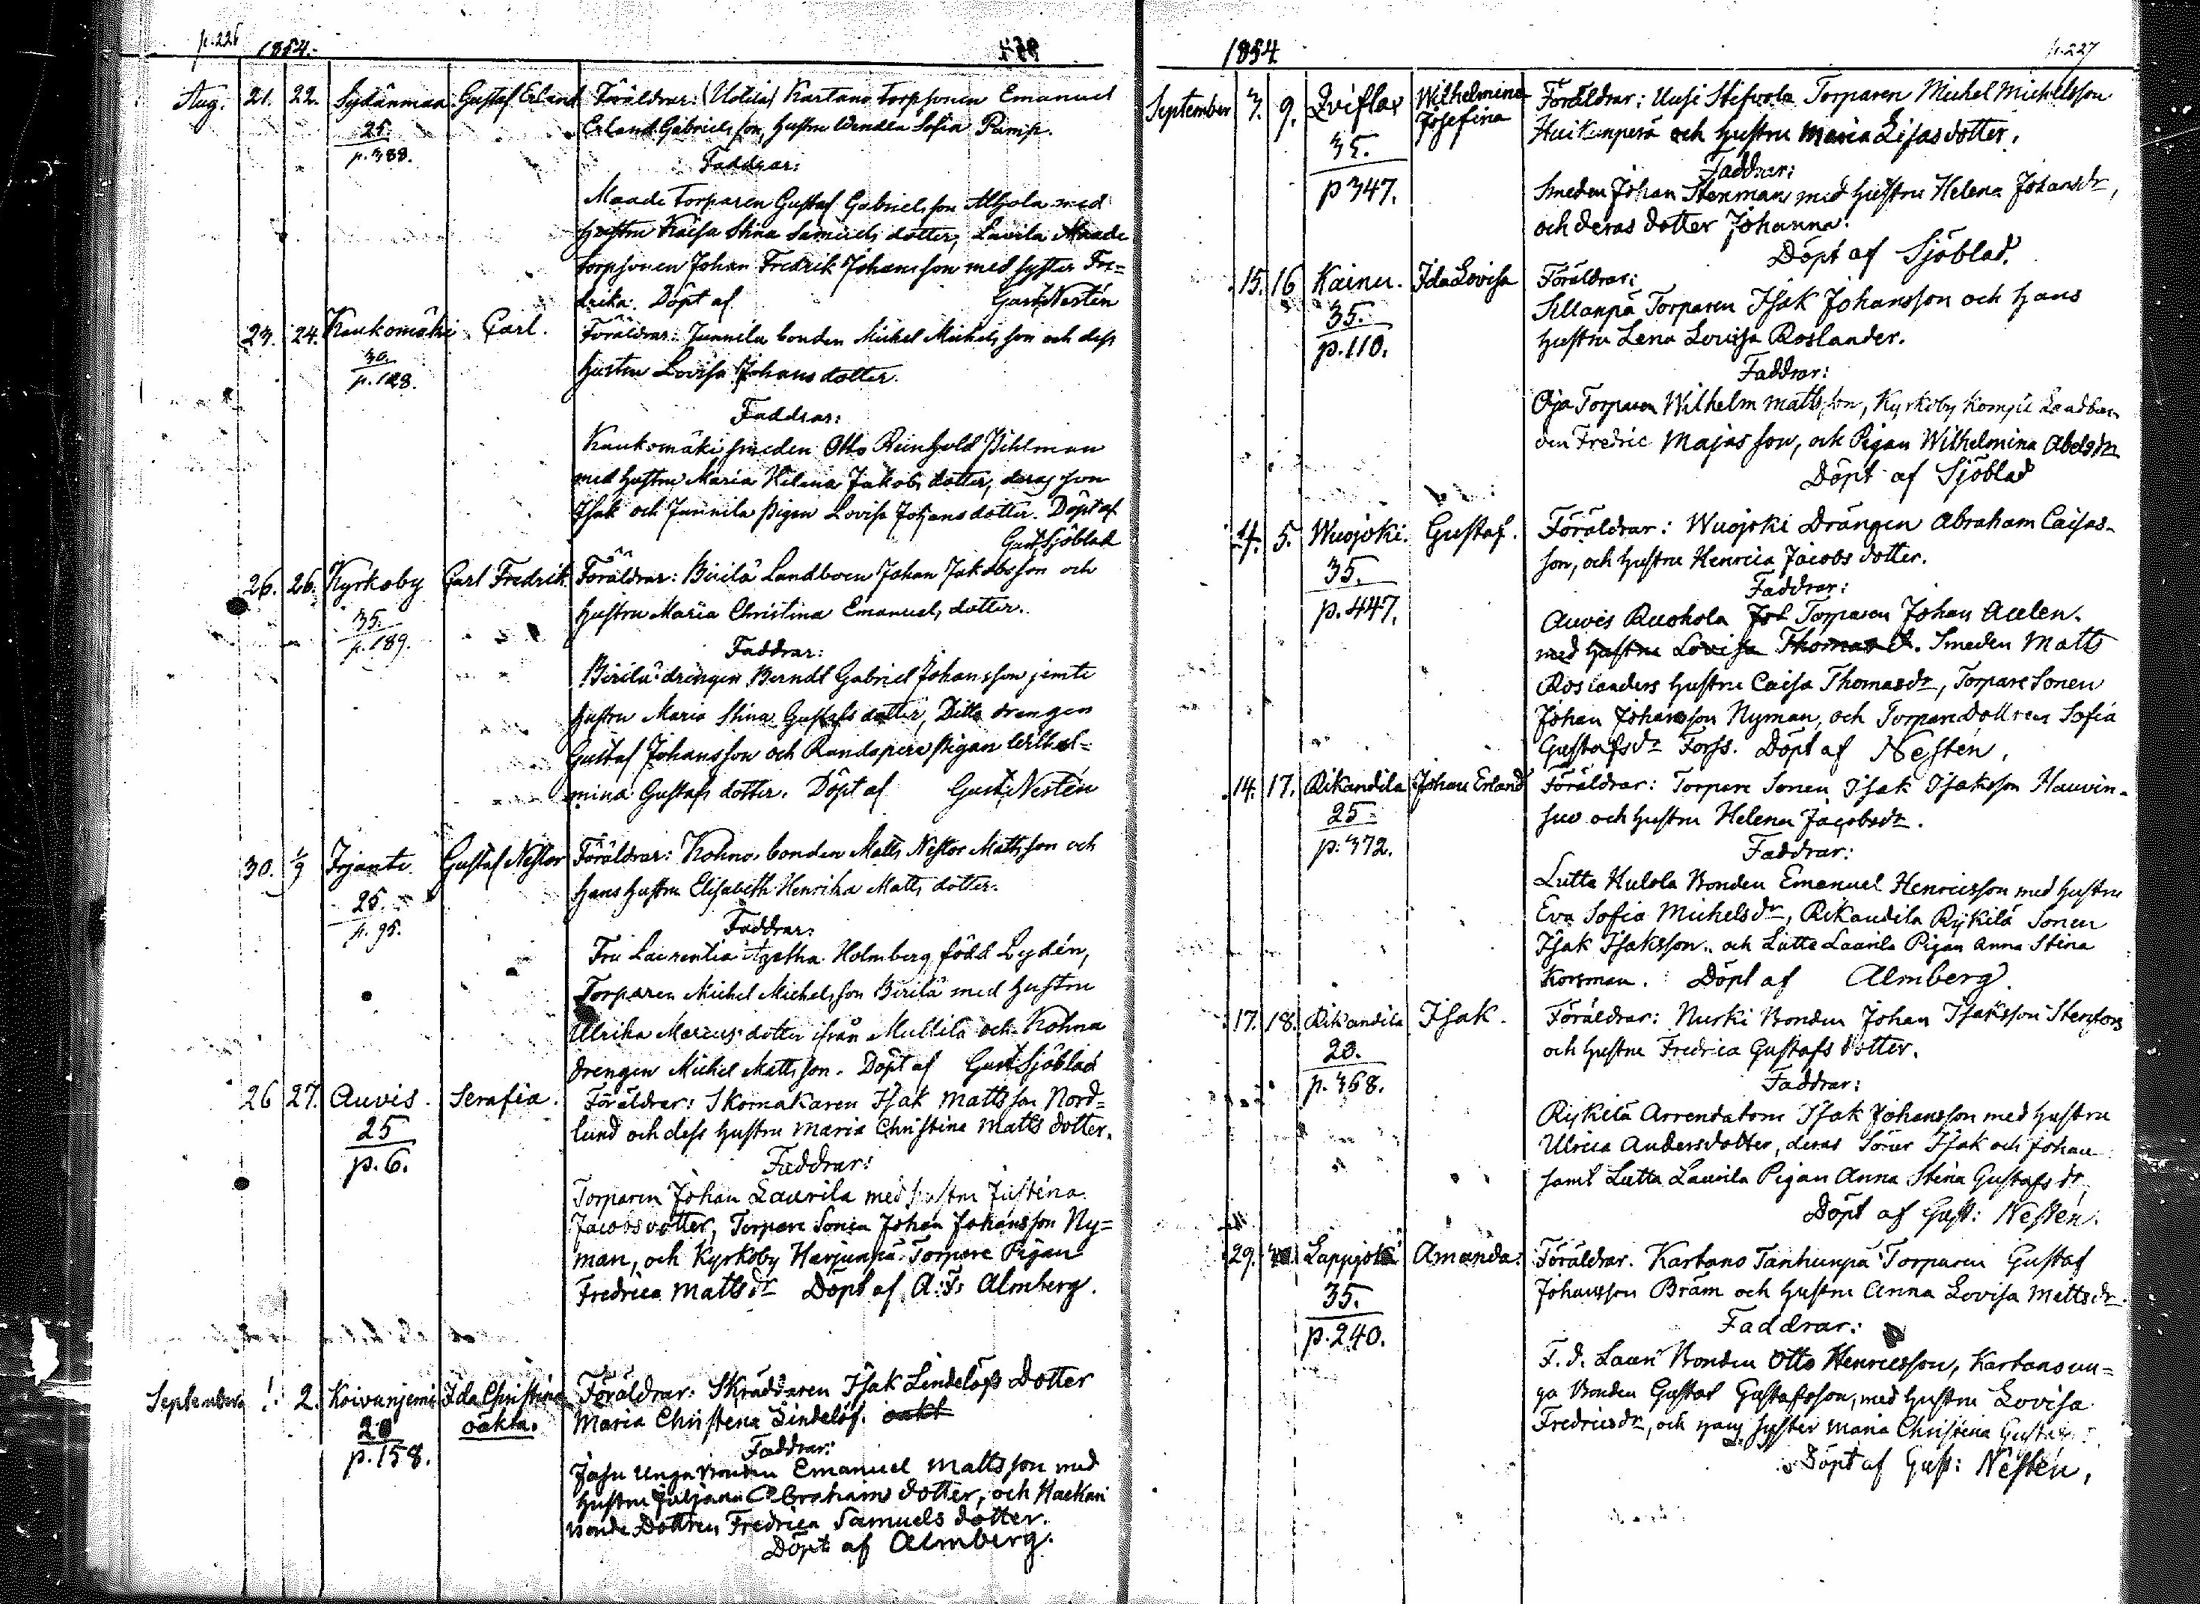 p. 226
1854.
Aug. 21. 22. Sydänmaa Gustaf Erland Föräldrar: Kartano torpsonen Emanuel
25.
p. 388.
Erland Gabrielsson, hustru Wendla Sofia Ramp.
Faddrar:
Maade Torparen Gustaf Gabrielsson med
hustru Kaisa Stina Samuels dotter, Laurila Maade
torpsonen Johan Fredrik Johansson med syster Fre=
drika. Döpt af Gust. Nestén
23. 24. Kaukomäki Carl. Föräldrar: Junnila bonden Michel Michelsson och dess
30.
p. 128.
hustru Lovisa Johansdotter.
Faddrar:
Kaukomäki smeden Otto Reinhold Pihlman
med hustru Maria Helena Jakobs dotter, deras son
Isak och Junnila pigan Lovisa Johansdotter. Döpt af
Gust. Sjöblad
26. 26. Kyrkoby Carl Fredrik Föräldrar: Birilä Landboen Johan Jakobsson och
35.
p. 189.
hustru Maria Christina Emanuels dotter.
Faddrar:
Birilä drengen Berndt Gabriel Johansson jemte
hustru Maria Stina Gustafs dotter, Ditto drengen
Gustaf Johansson och Randapere pigan Wilhel=
mina Gustafs dotter. Döpt af Gust. Nestén
30. 1/9 Irjante Gustaf Nestor Föräldrar: Kohno bonden Matts Nestor Mattsson och
25.
p. 95.
hans hustru Elisabeth Henrika Matts dotter.
Faddrar:
Fru Laurentia Agatha Holmberg, född Lydén,
Torparen Michel Michelsson Birilä med hustru
Ulrika Marcus dotter ifrån Mullila och Kohna
drengen Michel Mattsson. Döpt af Gust. Sjöblad
26 27. Auvis. Serafia. Föräldrar: Skomakaren Isak Mattsson Nord=
25
p. 6.
lund och dess hustru Maria Christina Matts dotter.
Faddrar:
Torparen Johan Laurila med hustru Justina
Jacobsdotter, Torpare Sonen Johan Johansson Ny=
man, och Kyrkoby Harjunpä Torpare Pigan
Fredrica Matts dr Döpt af A. F. Almberg.
September 1. 2. Koivunjemi Ida Christina Föräldrar: Skräddaren Isak Lindelöfs Dotter
oäkta.
20
p. 158.
Maria Christina Lindelöf. oäkt
Faddrar:
Jasu Unga Bonden Emanuel Mattsson med
hustru Juljana Abrahams dotter, och Haekari
bonde Dottren Fredrica Samuels dotter.
Döpt af Almberg.
1854
p. 227
September 7. 9. Qviflax Wilhelmina Josefina Föräldrar: Uusi Stifvola Torparen Michel Michelsson
35.
p 347.
Huikunperä och hustru Maria Lisas dotter.
Faddrar:
Smeden Johan Stenman med hustru Helena Johansdr,
och deras dotter Johanna.
Döpt af Sjöblad.
15. 16 Kainu. Ida Lovisa Föräldrar:
35.
p. 110.
Sillanpä Torparen Isak Johansson och hans
hustru Lena Lovisa Roslander.
Faddrar:
Oja Torparen Wilhelm Mattsson, Kyrkoby Kompu Landbon
den Fredric Majasson, och Pigan Wilhelmina Abelsdr
Döpt af Sjöblad
4. 5. Wuojoki. Gustaf. Föräldrar: Wuojoki Drängen Abraham Caisas-
35.
p. 447.
son, och hustru Henrica Jacobs dotter.
Faddrar:
Auvis Ruohola Torparen Johan Aulen.
med hustru Lovisa Thomas d. Smeden Matts
Roslanders hustru Caisa Thomasdr, Torpare Sonen
Johan Johansson Nyman, och Torpare Dottren Sofia
Gustafsdr Forss. Döpt af Nesten.
14. 17. Rikandila Johan Erland Föräldrar: Torpare Sonen Isak Isaksson Hauvin-
25.
p. 372.
suo och hustru Helena Jacobsdr.
Faddrar:
Lutta Hulola Bonden Emanuel Henricsson med hustru
Eva Sofia Michelsdr, Rikandila Rykilä Sonen
Isak Isaksson, och Lutta Laurila Pigan Anna Stina
Korsman. Döpt af Almberg.
17. 18. Rikandila Isak. Föräldrar: Nurki Bonden Johan Isaksson Stenfors
23.
p. 368.
och hustru Fredrica Gustafs dotter.
Faddrar:
Rykilä Arrendatorn Isak Johansson med hustru
Ulrica Andersdotter, deras Söner Isak och Johan
samt Lutta Laurila Pigan Anna Stina Gustafs dr.
Döpt af Gust: Nestén.
29. Lappjoki Amanda. Föräldrar. Kartano Tanhunpä Torparen Gustaf
35.
p. 240.
Johansson Bräm och hustru Anna Lovisa Mattsdr.
Faddrar:
F. d. Lauri Bonden Otto Henricsson, Kartano un=
ga Bonden Gustaf Gustafsson, med hustru Lovisa
Fredricsdr, och hans syster Maria Christina
Döpt af Gust: Nestén.